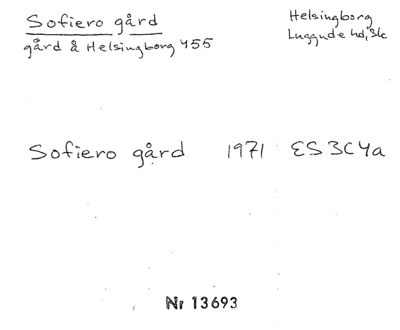 Sofiero gård
gård å Helsingborg 455
Helsingborg
Luggude hd, Sk
Sofiero gård 1971 ES 3C4a
Nr 13693